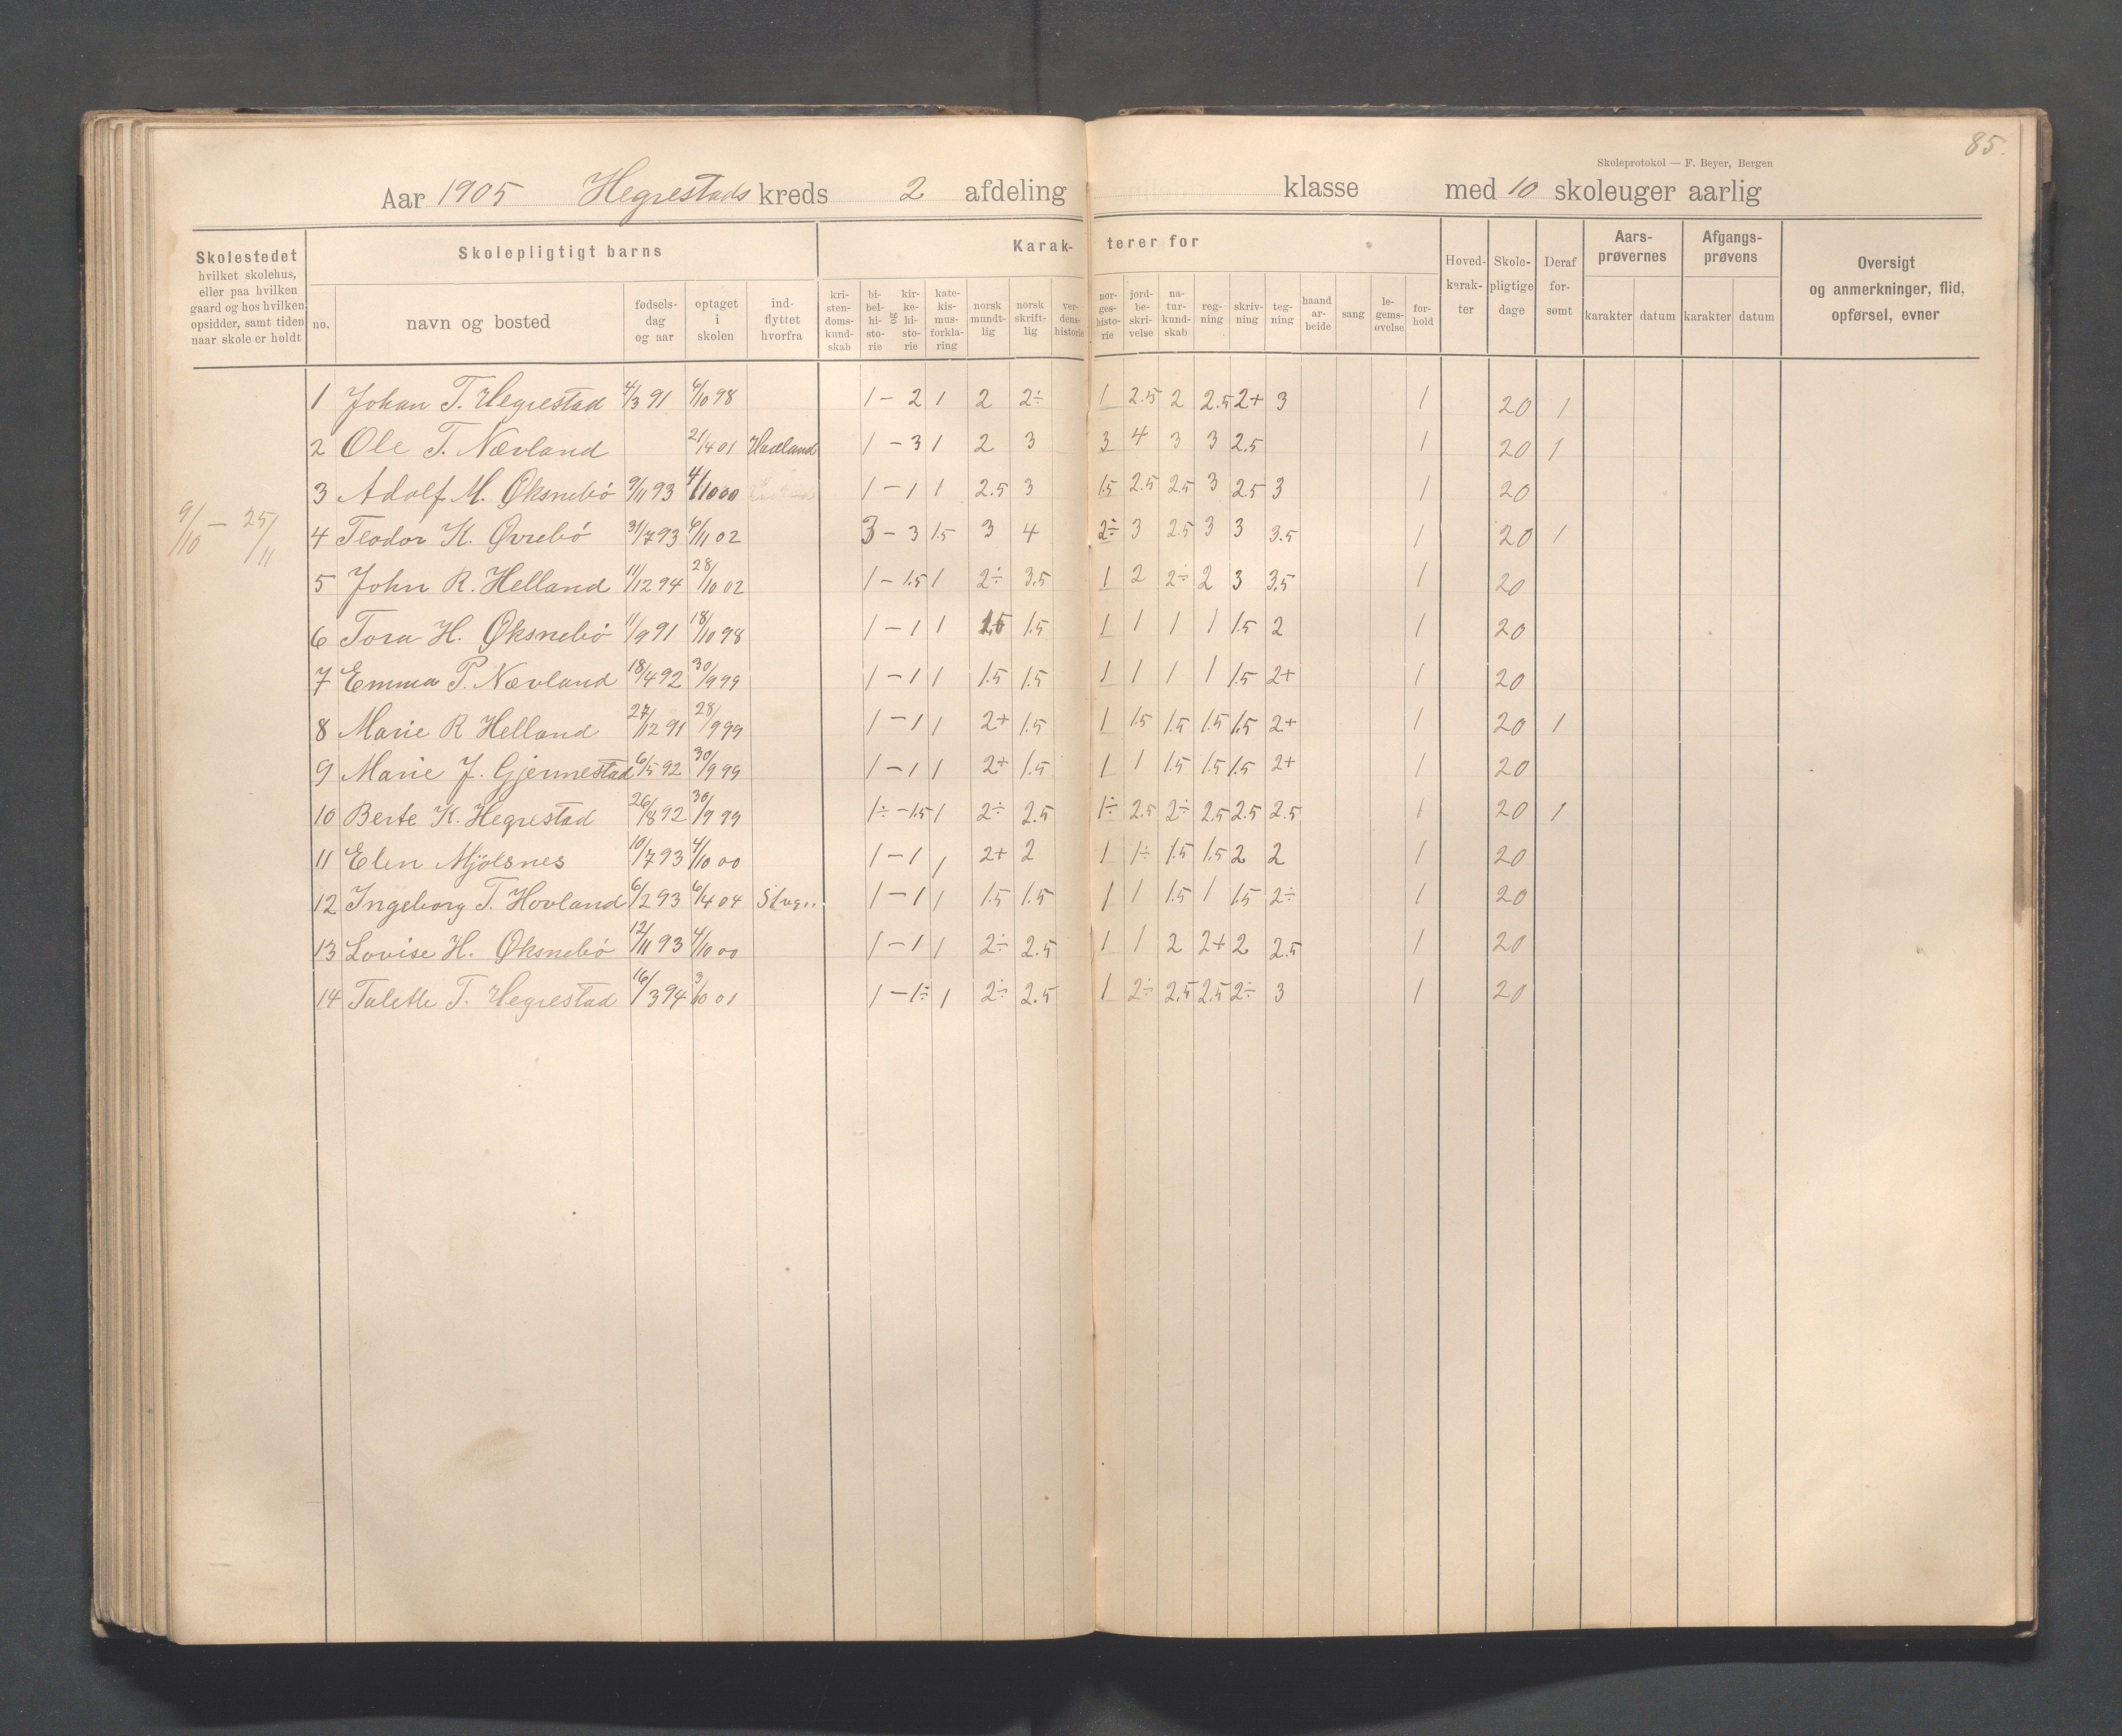 85.
Skoleprotokol — F. Beyer, Bergen
Aar 1905 Hegrestads kreds 2 afdeling klasse med 10 skoleuger aarlig
Skolestedet hvilket skolehus, eller paa hvilken gaard og hos hvilken opsidder, samt tiden naar skole er holdt
Skolepligtigt barns
Karak- terer for
no.
navn og bosted
fødsels- dag og aar
optaget i skolen
ind- flyttet hvorfra
kri- sten- doms- kund- skab
bi- bel- hi- sto- rie
og
kir- ke- hi- sto- rie
kate- kis- mus- forkla- ring
norsk mundt- lig
norsk skrift- lig
ver- dens- historie
nor- ges- histo- rie
jord- be- skri- velse
na- tur- kund- skab
reg- ning
skriv- ning
teg- ning
haand ar- beide
sang
le- gems- øvelse
for- hold
Hoved- karak- ter
Skole- pligtige dage
Deraf for- sømt
Aars- prøvernes
karakter datum
Afgangs- prøvens
karakter datum
Oversigt og anmerkninger, flid, opførsel, evner
9/10 — 25/11
1 Johan T. Hegrestad 4/3 91 6/10 98 1 – 2 1 2 2÷ 1 2.5 2 2.5 2+ 3 1 20 1
2 Ole T. Nævland 21/4 01 Haaland 1 – 3 1 2 3 3 4 3 3 2.5 1 20 1
3 Adolf M. Øksnebø 9/11 93 4/10 00 1 – 1 1 2.5 3 1.5 2.5 2.5 3 2.5 3 1 20
4 Teodor K. Øvrebø 31/7 93 6/11 02 3 – 3 1.5 3 4 2÷ 3 2.5 3 3 3.5 1 20 1
5 John R. Helland 11/12 94 28/10 02 1 – 1.5 1 2÷ 3.5 1 2 2÷ 2 3 3.5 1 20
6 Tora H. Øksnebø 11/9 91 18/10 98 1 – 1 1 1.5 1.5 1 1 1 1 1.5 2 1 20
7 Emma P. Nævland 18/4 92 30/9 99 1 – 1 1 1.5 1.5 1 1 1 1 1.5 2+ 1 20
8 Marie R Helland 27/12 91 28/9 99 1 – 1 1 2+ 1.5 1 1.5 1.5 1.5 1.5 2+ 1 20 1
9 Marie J. Gjermestad 6/5 92 30/9 99 1 – 1 1 2+ 1.5 1 1 1.5 1.5 1.5 2+ 1 20
10 Berte K. Hegrestad 26/8 92 30/9 99 1÷ – 1.5 1 2÷ 2.5 1÷ 2.5 2÷ 2.5 2.5 2.5 1 20 1
11 Elen Mjølsnes 10/7 93 4/10 00 1 – 1 1 2+ 2 1 1÷ 1.5 1.5 2 2 1 20
12 Ingeborg T. Hovland 6/2 93 6/4 04 1 – 1 1 1.5 1.5 1 1 1.5 1 1.5 2÷ 1 20
13 Lovise H. Øksnebø 12/11 93 4/10 00 1 – 1 1 2÷ 2.5 1 1 2 2+ 2 2.5 1 20
14 Talette T. Hegrestad 16/3 94 3/10 01 1 – 1÷ 1 2÷ 2.5 1 2÷ 2.5 2.5 2÷ 3 1 20